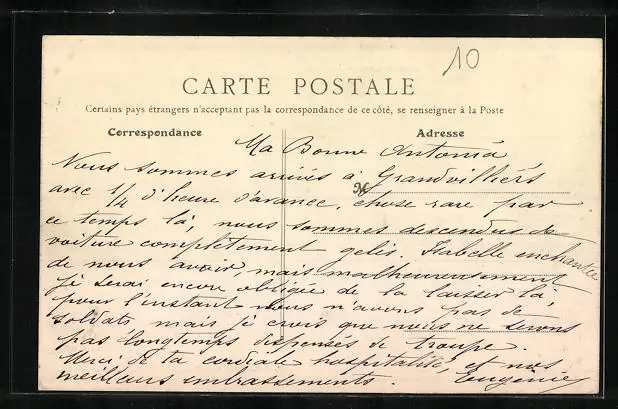 10
CARTE POSTALE
Certains pays étrangers n'acceptant pas la correspondance de ce côté, se renseigner à la Poste
Correspondance Adresse
Ma Bonne Antonia
Nous sommes arrivés à Grandvilliers
M
avec 1/4 d'heure d'avance, chose rare par
ce temps là, nous sommes descendus de
voiture complètement gelés. Isabelle enchantée
de nous avoir, mais malheureusement
je serai encore obligée de la laisser là,
pour l'instant nous n'avons pas de
soldats, mais je crois que nous ne serons
pas longtemps dispensés de troupe
Merci de ta cordiale hospitalité, et nos
meilleurs embrassements. Eugénie